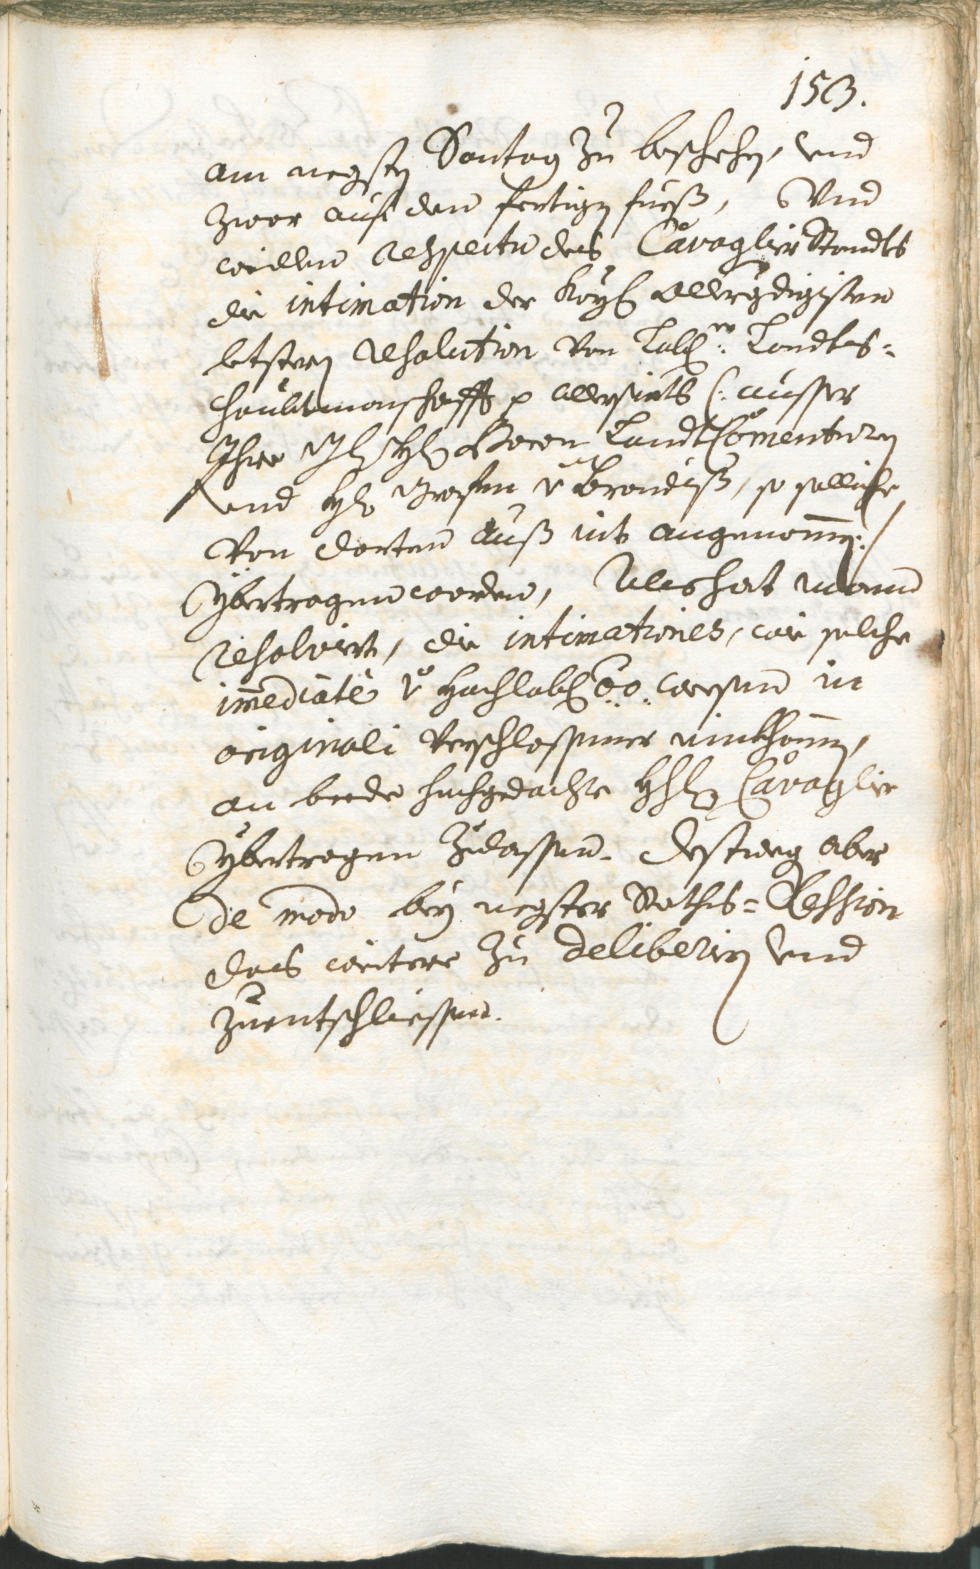 153.
am negsten Sontag zu beschehen, vnd
zwar auf den fertigen fueß, Vnd
weillen respectu des Cavaglier Standts
die intimation der Kayl allergdigisten
letsteren resolution von Lobl.er Landts=
haubtmanschafft p allerseits (: ausser
Ihro Hl Baron LandtComenturn
vnd Hl Grafen v Brandiß, so solliche
von dorten auß nit angenomen :/
ybertragen worden, Als hat mann
resolviert, die intimationes, wie solche
imediate v hochlobl OO. wesen in
originali verschlossener einkhomen,
an beede hochgedachte Hhl Cavaglier
ybertragen zulassen. Destweg aber
de modo bey negster Raths=Session
das weitere zu deliberirn vnd
zuentschliessen.